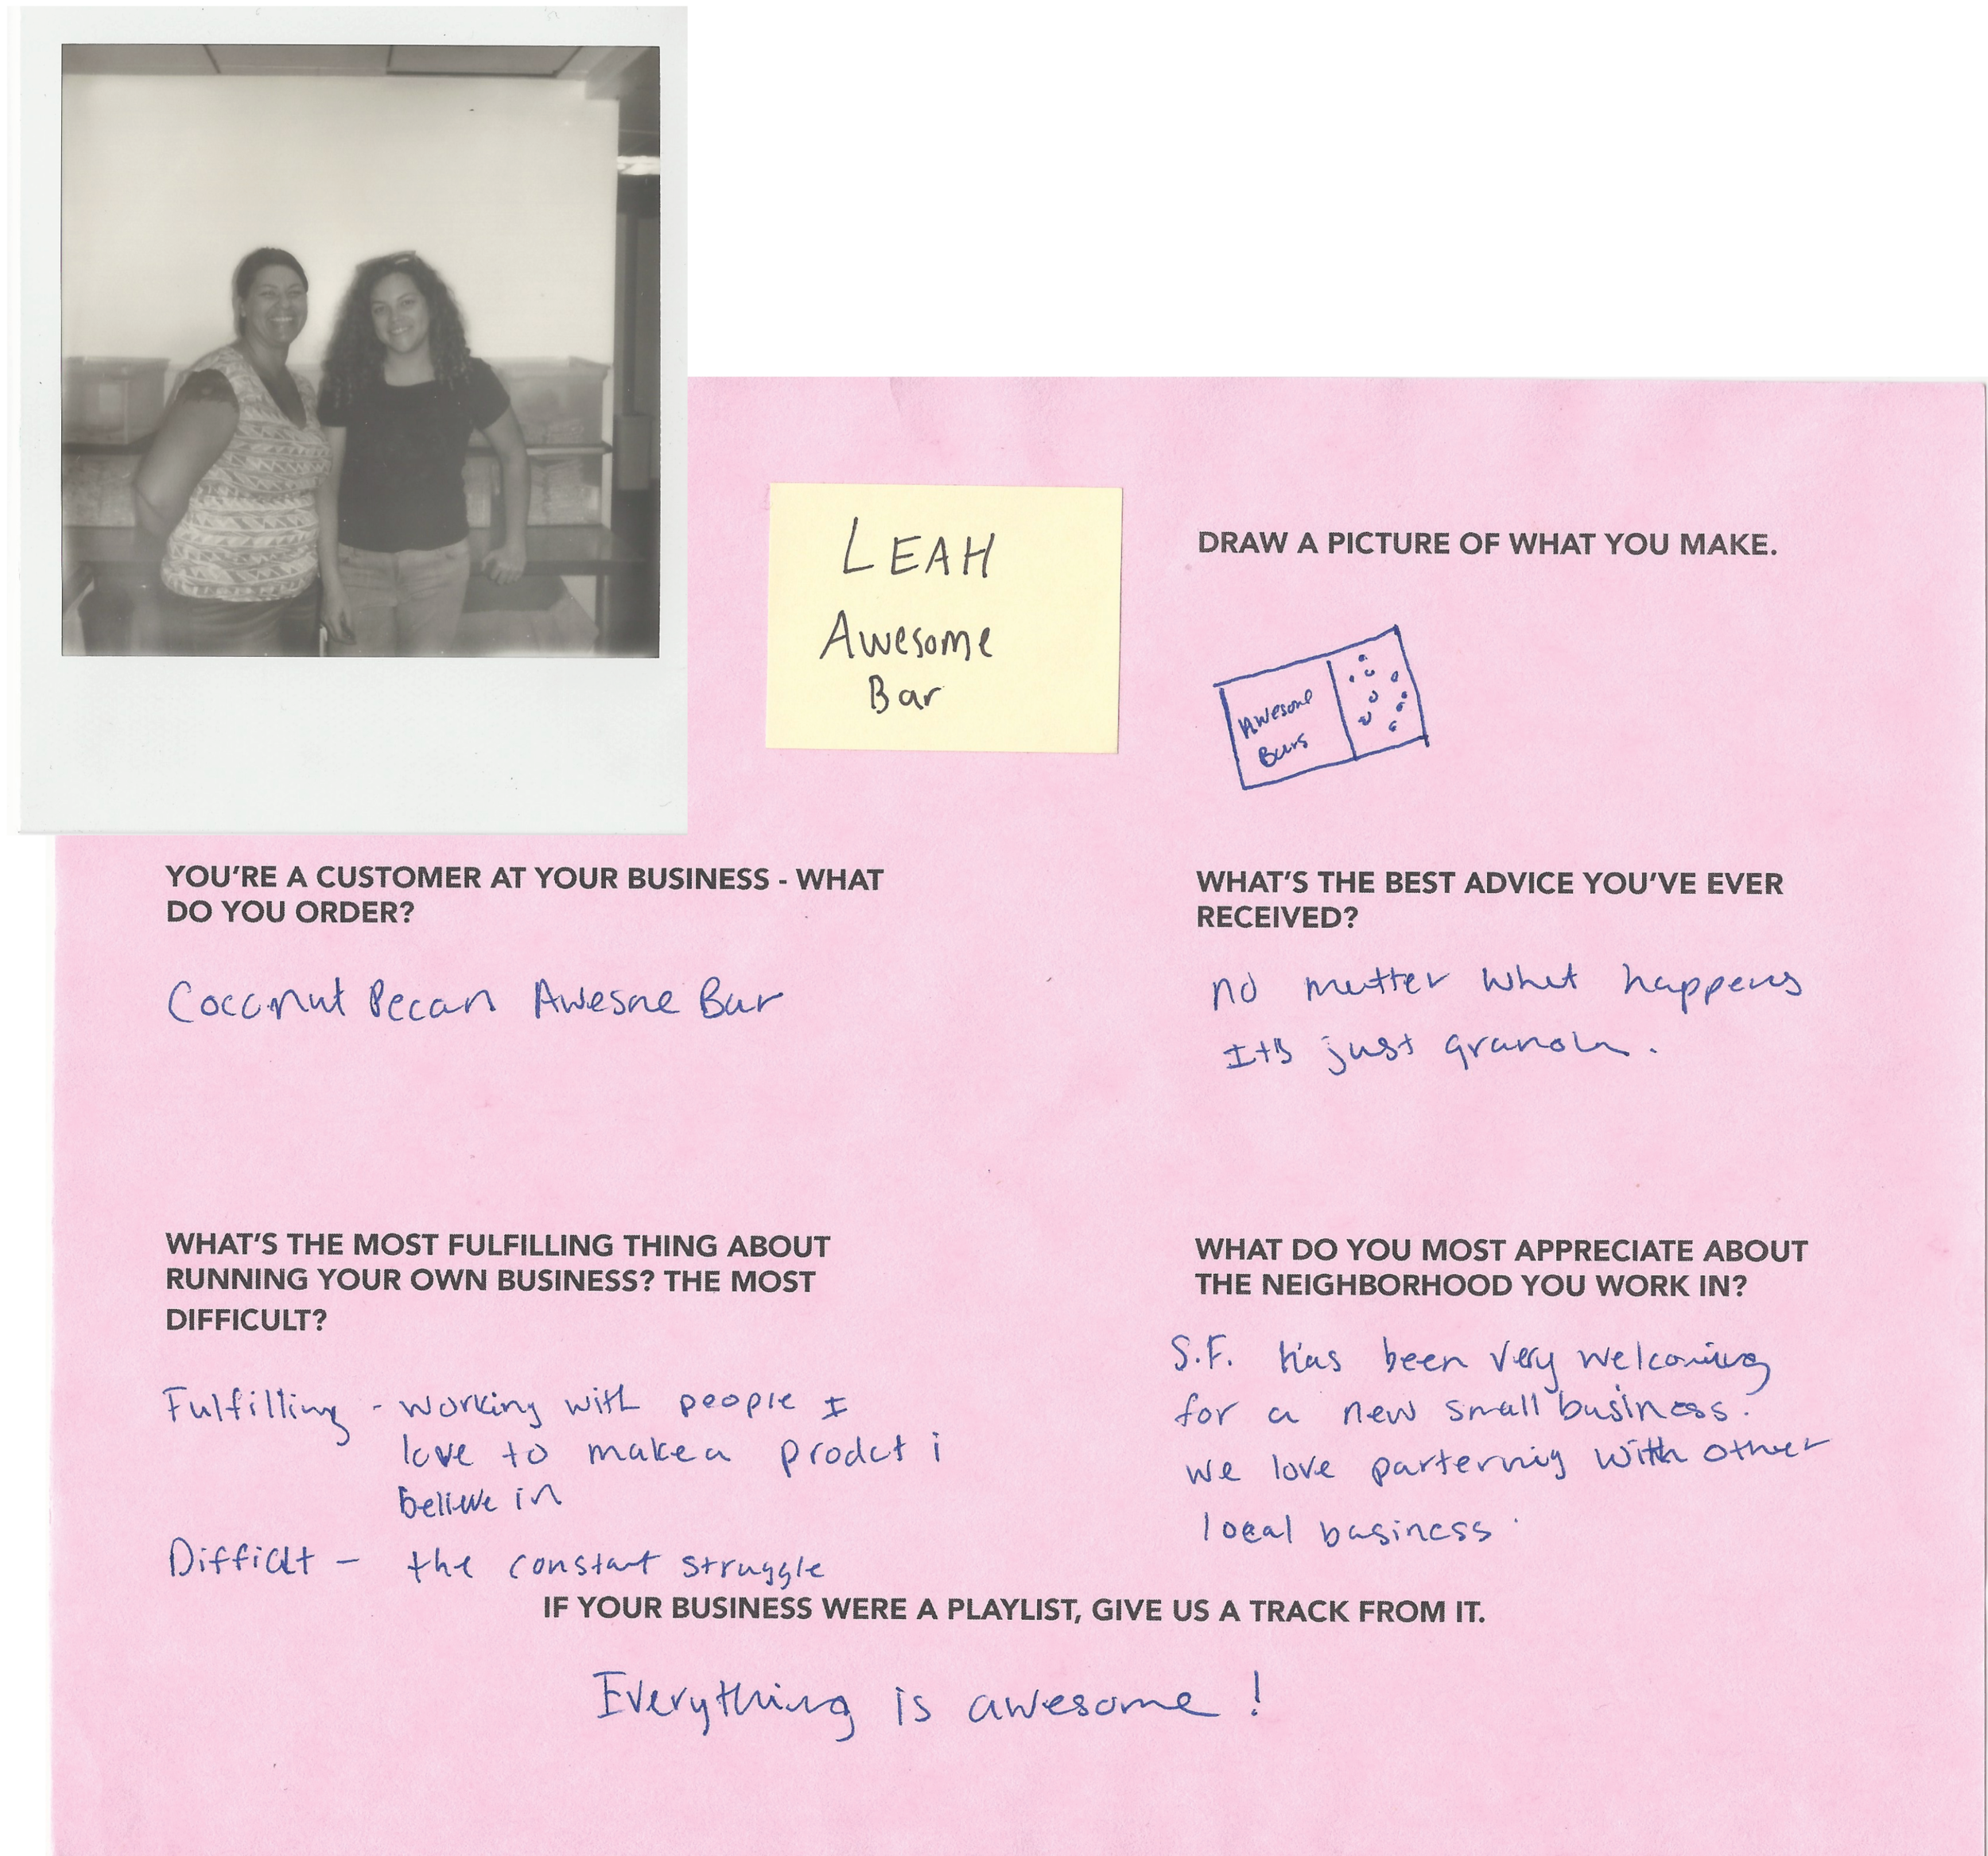 LEAH
Awesome
Bar
DRAW A PICTURE OF WHAT YOU MAKE.
Awesome
Bars
YOU'RE A CUSTOMER AT YOUR BUSINESS - WHAT
DO YOU ORDER?
Coconut Pecan Awesne Bar
WHAT'S THE BEST ADVICE YOU'VE EVER
RECEIVED?
no matter what happens
It's just granola.
WHAT'S THE MOST FULFILLING THING ABOUT
RUNNING YOUR OWN BUSINESS? THE MOST
DIFFICULT?
Fulfilling - working with people I
love to make a prodct i
believe in
Difficlt - the constant struggle
WHAT DO YOU MOST APPRECIATE ABOUT
THE NEIGHBORHOOD YOU WORK IN?
S.F. has been very welcoming
for a new small business.
we love parternig with other
local business.
IF YOUR BUSINESS WERE A PLAYLIST, GIVE US A TRACK FROM IT.
Everything is awesome!